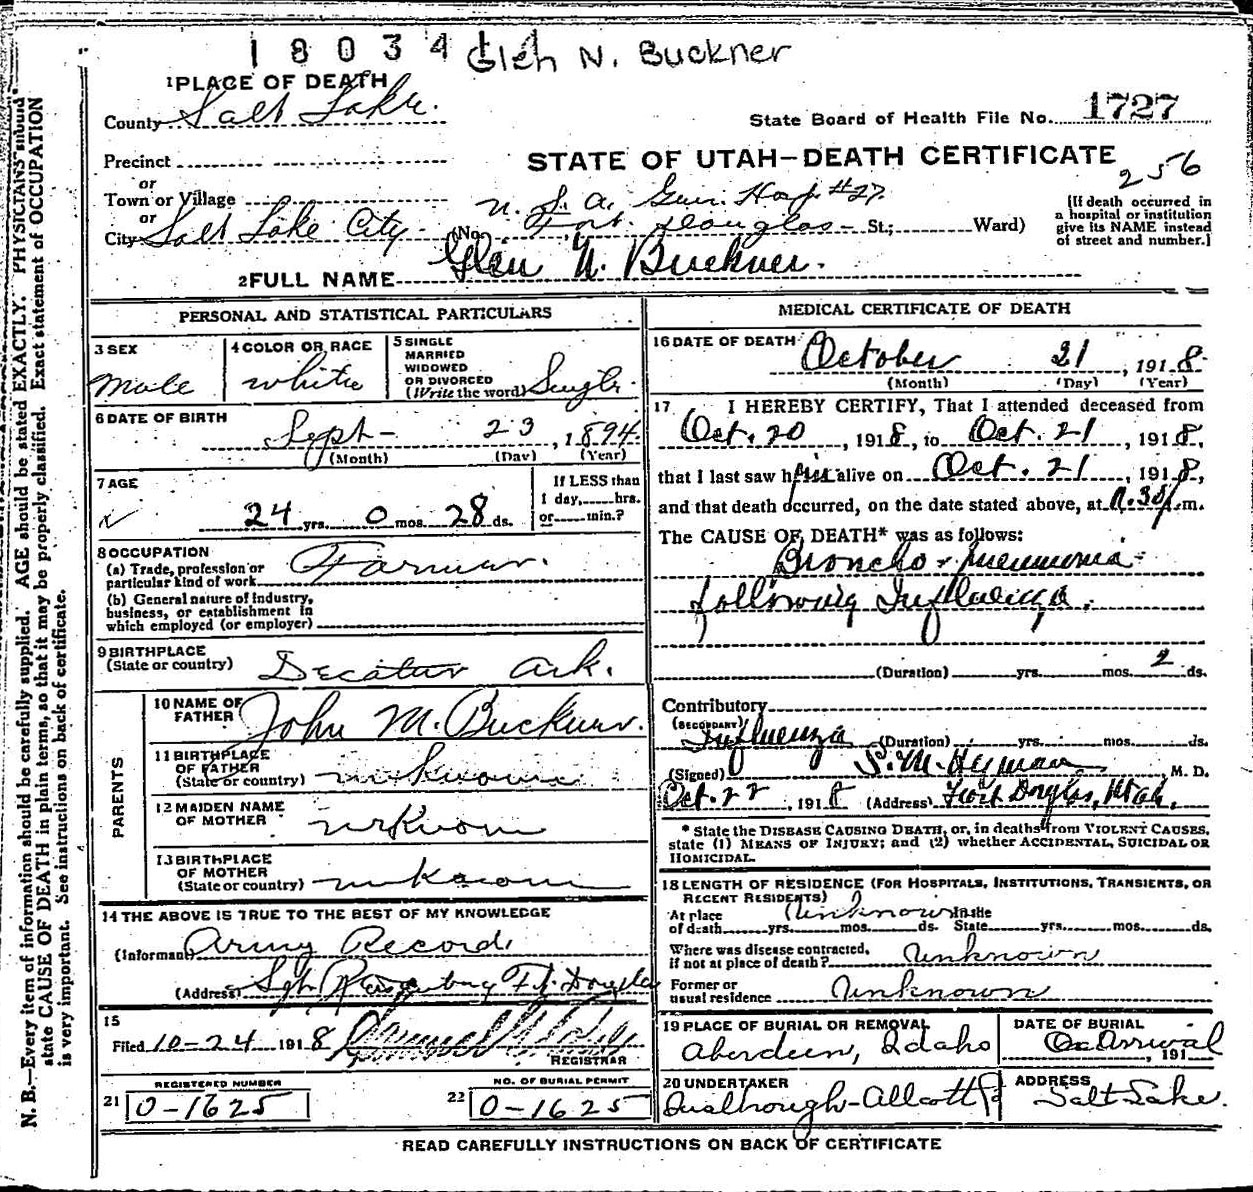 18034 Glen N. Buckner
1 PLACE OF DEATH
County Salt Lake.
State Board of Health File No. 1727
Precinct
STATE OF UTAH—DEATH CERTIFICATE
256
or
Town or Village
or
City Salt Lake City.
U. S. A. Gen. Hosp #27.
(No. Fort Douglas St.; Ward)
[If death occurred in a hospital or institution give its NAME instead of street and number.]
2 FULL NAME Glen N. Buckner.
PERSONAL AND STATISTICAL PARTICULARS
3 SEX
Male
4 COLOR OR RACE
white
5 SINGLE
MARRIED
WIDOWED
OR DIVORCED
(Write the word) Single.
6 DATE OF BIRTH
Sept- 23, 1894.
(Month) (Day) (Year)
7 AGE
24 yrs. 0 mos. 28 ds.
If LESS than
1 day, hrs.
or min.?
8 OCCUPATION
(a) Trade, profession or
particular kind of work Farmer.
(b) General nature of Industry,
business, or establishment in
which employed (or employer)
9 BIRTHPLACE
(State or country) Decatur Ark.
PARENTS
10 NAME OF
FATHER John M. Buckner.
11 BIRTHPLACE
OF FATHER
(State or country) unknown
12 MAIDEN NAME
OF MOTHER unknown
13 BIRTHPLACE
OF MOTHER
(State or country) unknown
14 THE ABOVE IS TRUE TO THE BEST OF MY KNOWLEDGE
(Informant) Army Record,
(Address) Ft. Douglas
15
Filed 10-24 1918
REGISTRAR
REGISTERED NUMBER
21 0-1625
NO. OF BURIAL PERMIT
22 0-1625
MEDICAL CERTIFICATE OF DEATH
16 DATE OF DEATH October 21, 1918.
(Month) (Day) (Year)
17 I HEREBY CERTIFY, That I attended deceased from
Oct. 20, 1918, to Oct. 21, 1918,
that I last saw him alive on Oct. 21, 1918,
and that death occurred, on the date stated above, at m.
The CAUSE OF DEATH* was as follows:
Broncho-pneumonia
following Influenza.
(Duration) yrs. mos. 2 ds.
Contributory
(SECONDARY)
Influenza (Duration) yrs. mos. ds.
(Signed) S. M. Hyman M. D.
Oct. 22, 1918 (Address) Fort Douglas, Utah.
* State the DISEASE CAUSING DEATH, or, in deaths from VIOLENT CAUSES,
state (1) MEANS OF INJURY; and (2) whether ACCIDENTAL, SUICIDAL OR
HOMICIDAL.
18 LENGTH OF RESIDENCE (FOR HOSPITALS, INSTITUTIONS, TRANSIENTS, OR
RECENT RESIDENTS)
At place
of death yrs. mos. ds. Unknown In the
State yrs. mos. ds.
Where was disease contracted,
if not at place of death? Unknown
Former or
usual residence Unknown
19 PLACE OF BURIAL OR REMOVAL
Aberdeen, Idaho
DATE OF BURIAL
On Arrival, 191
20 UNDERTAKER
ADDRESS
Salt Lake.
READ CAREFULLY INSTRUCTIONS ON BACK OF CERTIFICATE
N. B.—Every item of information should be carefully supplied. AGE should be stated EXACTLY. PHYSICIANS should
state CAUSE OF DEATH in plain terms, so that it may be properly classified. Exact statement of OCCUPATION
is very important. See instructions on back of certificate.